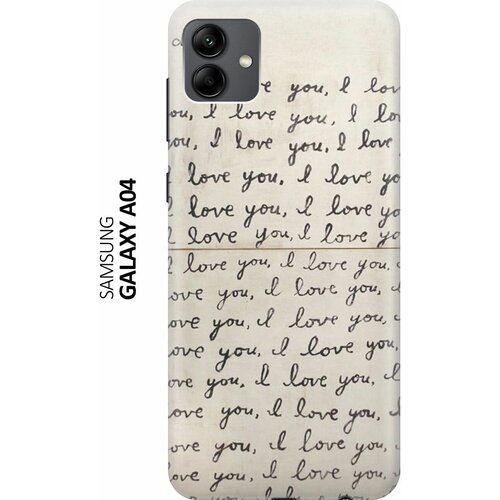 SAMSUNG
GALAXY A04
you, I lov
ou, I love you, I lo
ou, I love you, I love
love you, I love yo
I love you, I love yo
I love you, I love yo
I love you, I love you,
ove you, I love you,
ove you, I love you,
ove you, I love you,
ove you, I love you, I
ove you, I love you, I
ove you, I love you,
ove you, I love you,